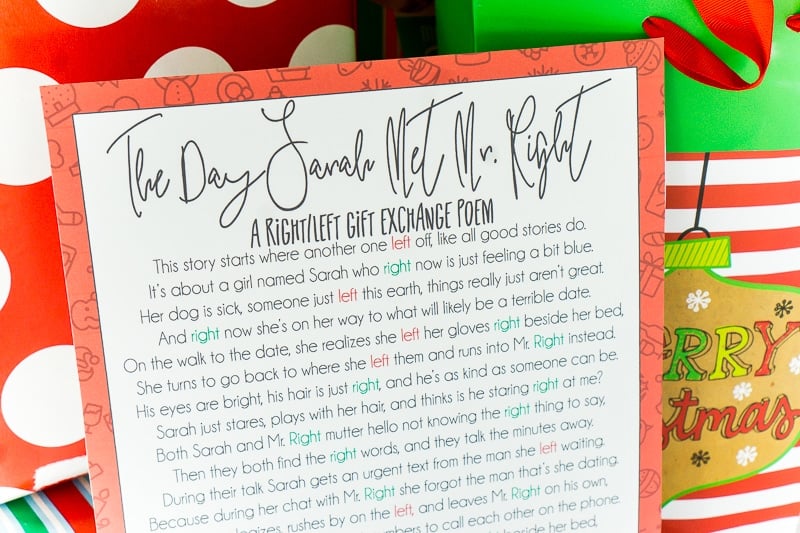 The Day Sarah Met Mr. Right
A RIGHT/LEFT GIFT EXCHANGE POEM
This story starts where another one left off, like all good stories do.
It's about a girl named Sarah who right now is just feeling a bit blue.
Her dog is sick, someone just left this earth, things really just aren't great.
And right now she's on her way to what will likely be a terrible date.
On the walk to the date, she realizes she left her gloves right beside her bed,
She turns to go back to where she left them and runs into Mr. Right instead.
His eyes are bright, his hair is just right, and he's as kind as someone can be.
Sarah just stares, plays with her hair, and thinks is he staring right at me?
Both Sarah and Mr. Right mutter hello not knowing the right thing to say,
Then they both find the right words, and they talk the minutes away.
During their talk Sarah gets an urgent text from the man she left waiting.
Because during her chat with Mr. Right she forgot the man that's she dating.
rushes by on the left, and leaves Mr. Right on his own,
to call each other on the phone.
beside her bed,
ERRY
stmas